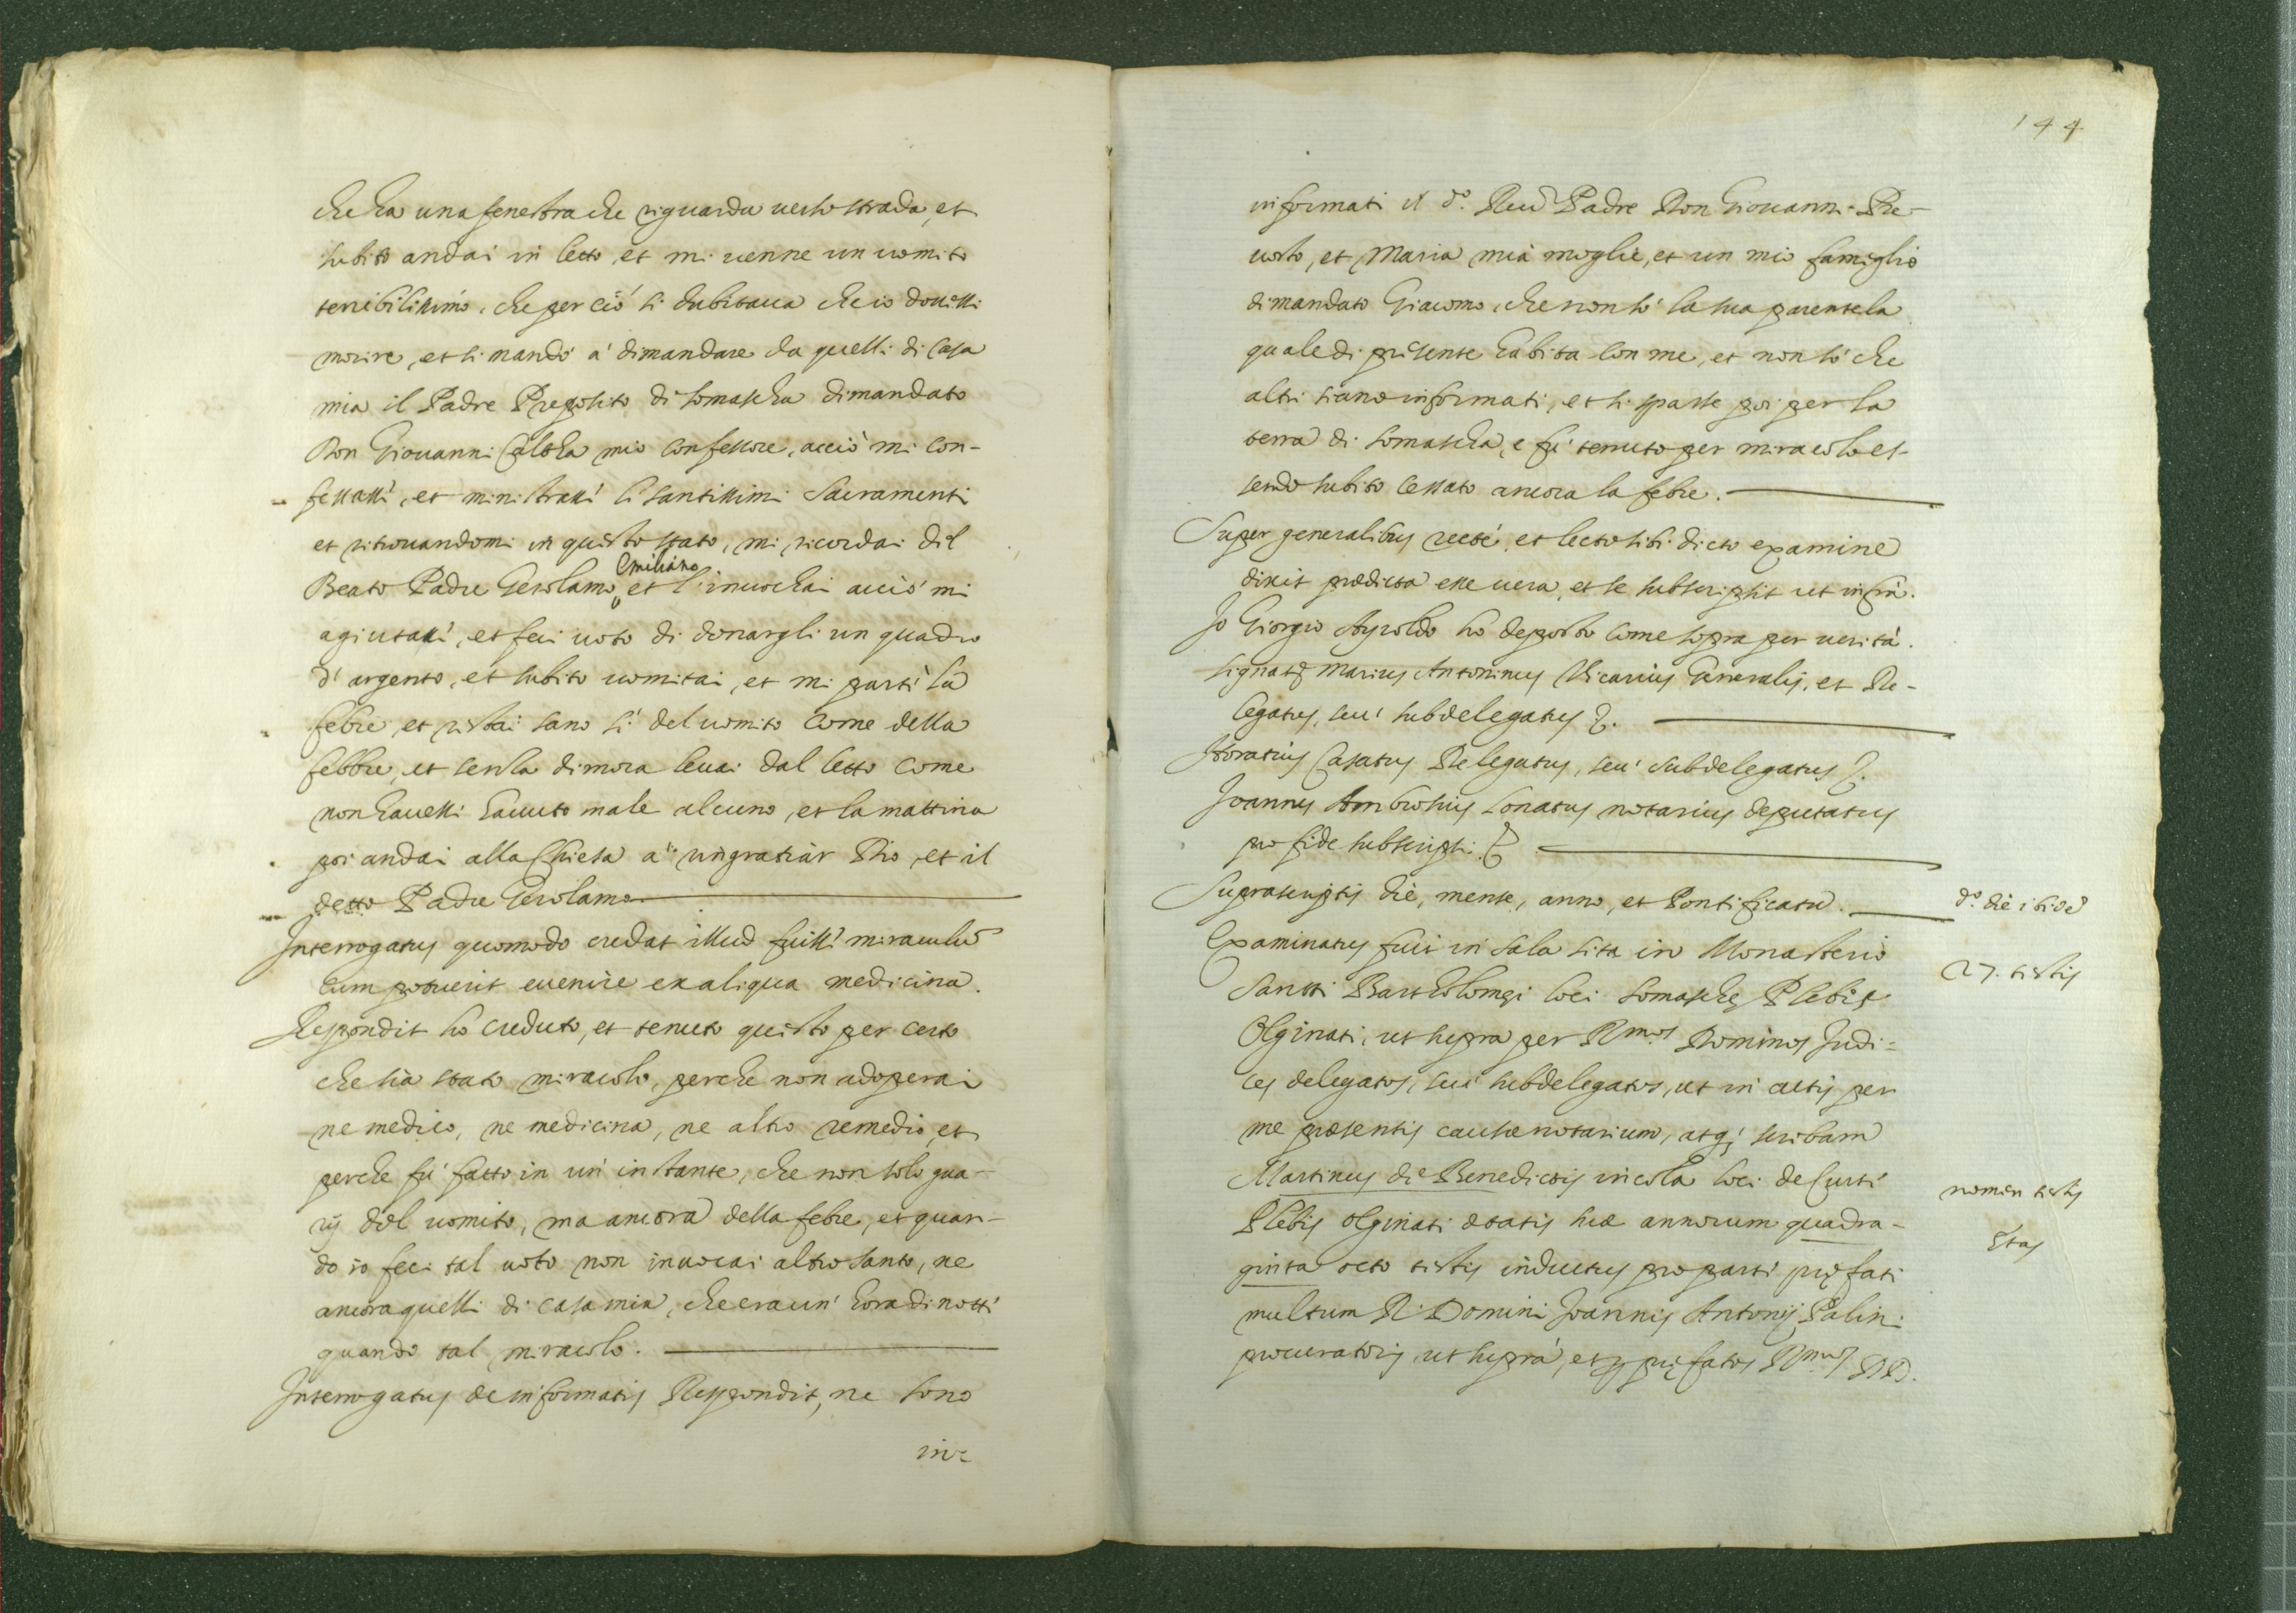 che ha una fenestra che riguarda verso strada, et
subito andai in letto, et mi venne un vomito
terribilissimo, che perciò si dubitava che io dovessi
morire, et si mandò à dimandare da quelli di casa
mia il Padre Preposito di Somascha dimandato
Don Giovanni Calcha mio confessore, acciò mi con-
fessassi, et ministrassi li santissimi Sacramenti
et ritrovandomi in questo stato, mi ricordai del
Emiliano
Beato Padre Gerolamo, et l'invochai acciò mi
agiutassi, et feci voto di donargli un quadro
d'argento, et subito vomitai, et mi partì la
febre, et restai sano sì del vomito come della
febbre, et senza dimora levai dal letto come
non havessi havuto male alcuno, et la mattina
poi andai alla Chiesa à ringratiar Dio, et il
detto Padre Gerolamo
Interrogatus quomodo credat illud fuissi miraculū
cum potuerit evenire ex aliqua medicina.
Respondit hò creduto, et tenuto questo per certo
che sia stato miracolo, perche non adoperai
ne medico, ne medicina, ne altro remedio, et
perche fù fatto in un' instante, che non solo gua-
rij del vomito, ma ancora della febre, et quan-
do io feci tal voto non invocai altro santo, ne
ancora quelli di casa mia, che era un' hora di notti
quando tal miracolo.
Interrogatus de informatis Respondit, ne sono
in-
144
informati il do. Reud Padre Don Giovanni Pre-
vosto, et Maria mia moglie, et un mio famiglio
dimandato Giacomo, che non sò la sua parentela
quale di presente habita con me, et non sò che
altri siano informati, et si sparse poi per la
terra di Somascha, e fù tenuto per miracolo es-
sendo subito cessato ancora la febre.
Super generalibus recté, et lecto sibi dicto examine
dixit prædicta esse vera, et se subscripsit ut infrà.
Io Giorgio Ayroldo hò deposto come sopra per verità.
signatꝫ Marius Antoninus Vicarius Generalis, et De-
legatus, seu' subdelegatus.
Horatius Casatus Delegatus, seu' subdelegatus.
Joannes Ambrosius Lonatus notarius deputatus
pro fide subscripsi.
Suprascriptis die, mense, anno, et Pontificatu.
do. die ibidē
Examinatus fuit in sala sita in Monasterio
27. testis
Sancti Bartholomęi loci Somaschę Plebis
Olginati, ut supra per Rmos Dominos Judi-
ces delegatos, seu' subdelegatos, ut in actis per
me præsentis causæ notarium, atq; scribam
Martinus de Benedictis incola loci de Cursi
nomen testis
Plebis Olginati ætatis suæ annorum quadra-
Etas
ginta octo testis inductus pro parti pręfati
multum R. Domini Joannis Antonij Palini
procuratoris, ut suprà, et p pręfatos Rmos DD.